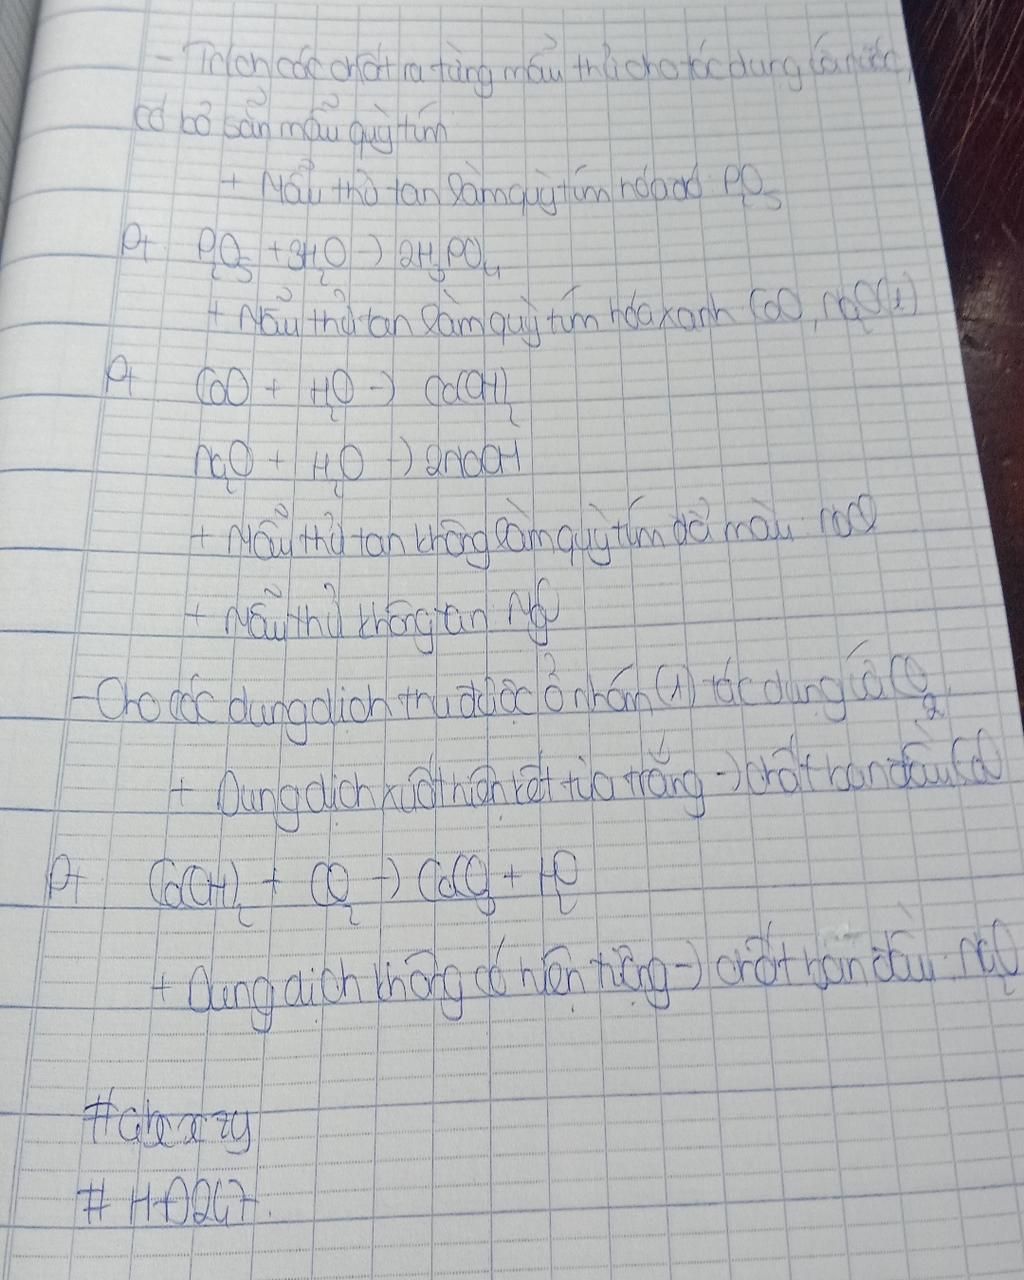 - Trích các chất ra từng mẫu thử cho tác dụng với nước,
có bỏ sẵn mẫu quỳ tím
+ Mẩu thử tan làm quỳ tím hóa đỏ P2O5
Pt P2O5 + 3H2O -> 2H3PO4
+ Mẩu thử tan làm quỳ tím hóa xanh CaO, Na2O (1)
Pt CaO + H2O -> Ca(OH)2
Na2O + H2O -> 2NaOH
+ Mẩu thử tan không làm quỳ tím đổi màu NaCl
+ Mẫu thử không tan MgO
- Cho các dung dịch thu được ở nhóm (1) tác dụng với CO2
+ Dung dịch xuất hiện kết tủa trắng -> chất ban đầu CaO
Pt Ca(OH)2 + CO2 -> CaCO3 + H2O
+ Dung dịch không có hiện tượng -> chất ban đầu Na2O